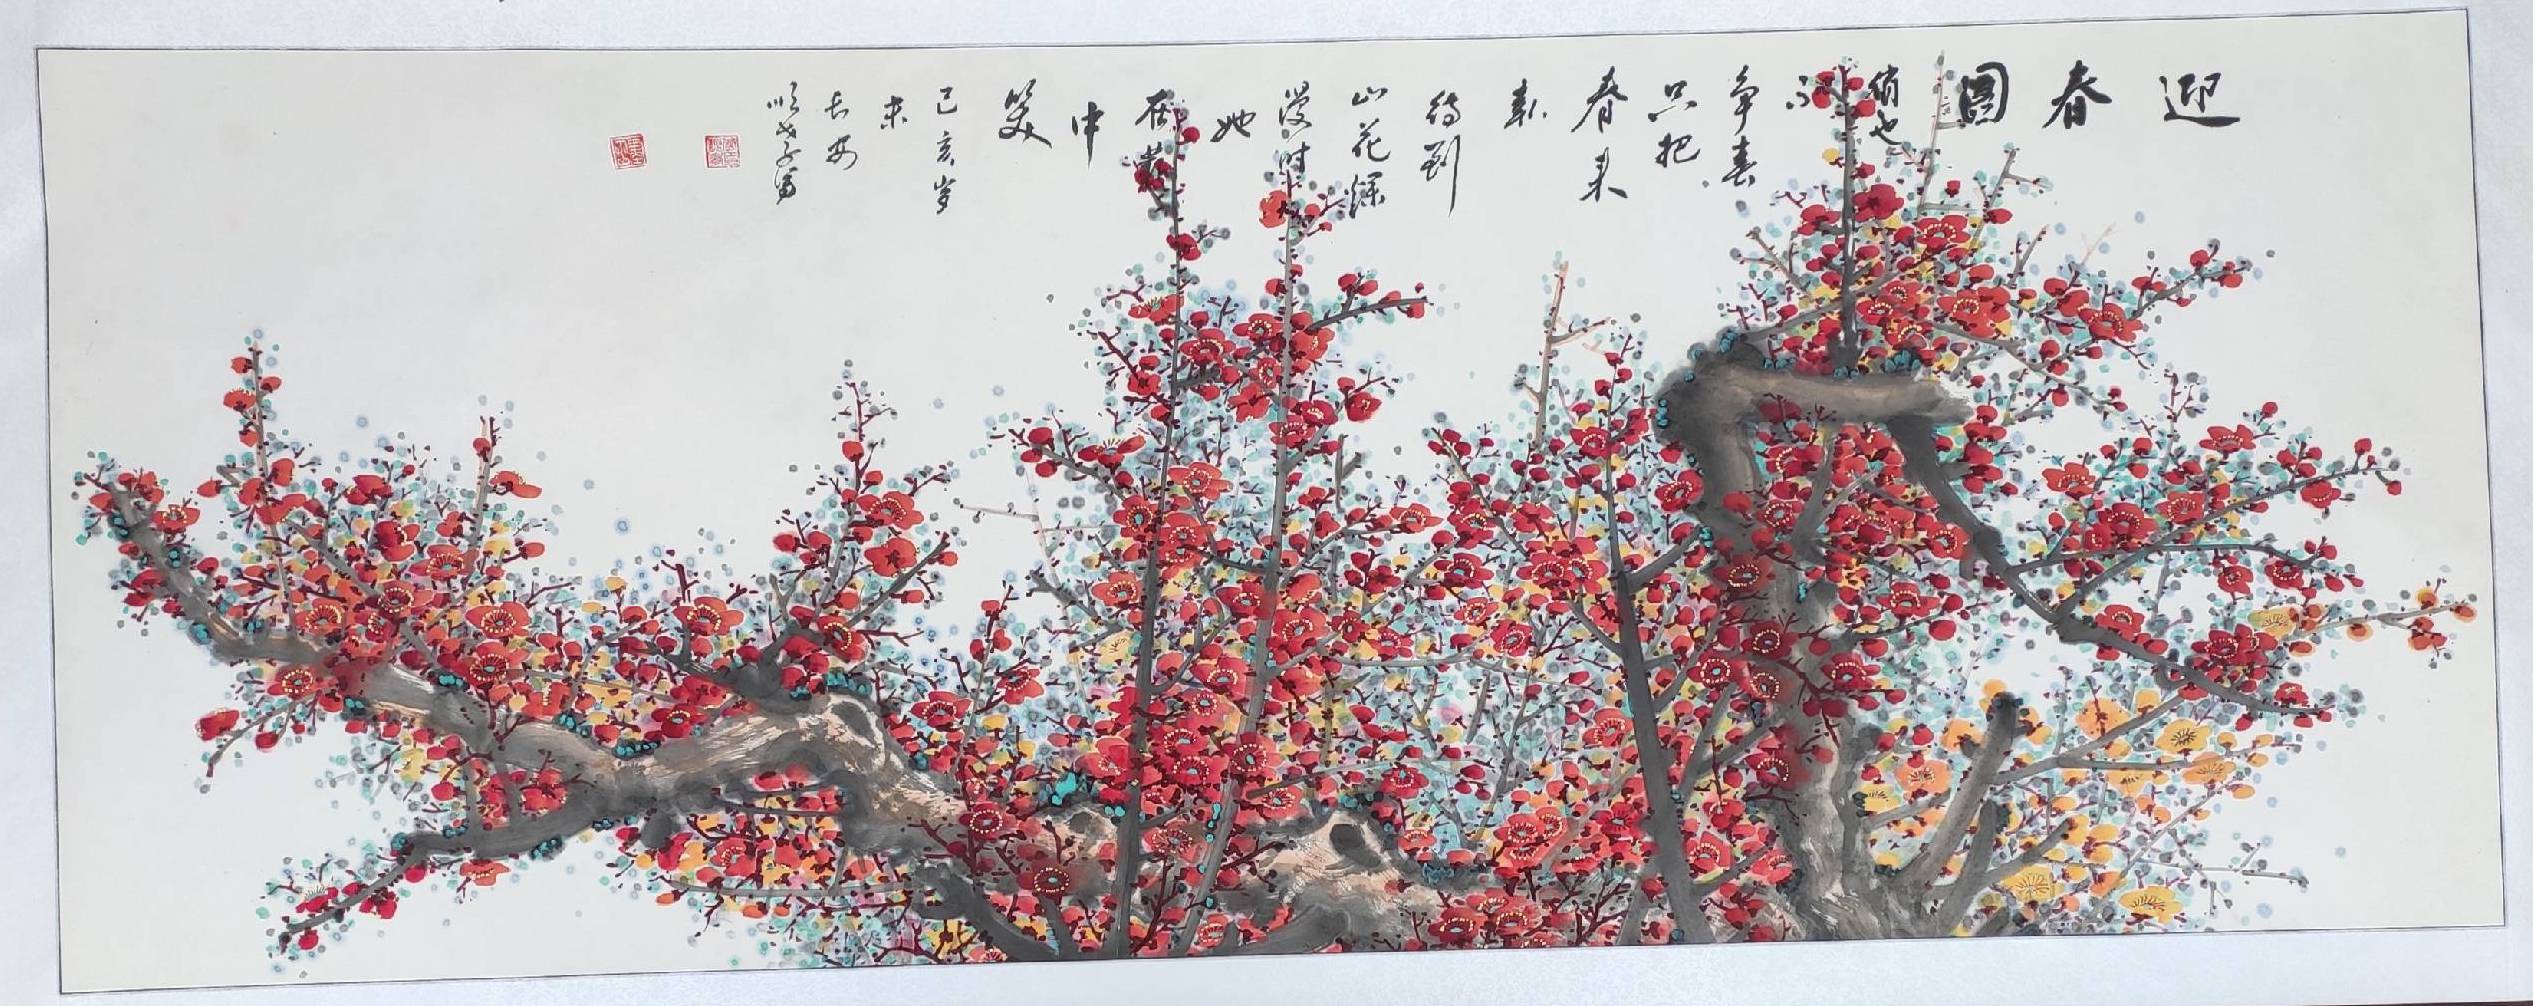 迎春图
俏也
不
争春
只把
春来
报
待到
山花烂
漫时
她
在丛
中
笑
己亥岁
末
长安